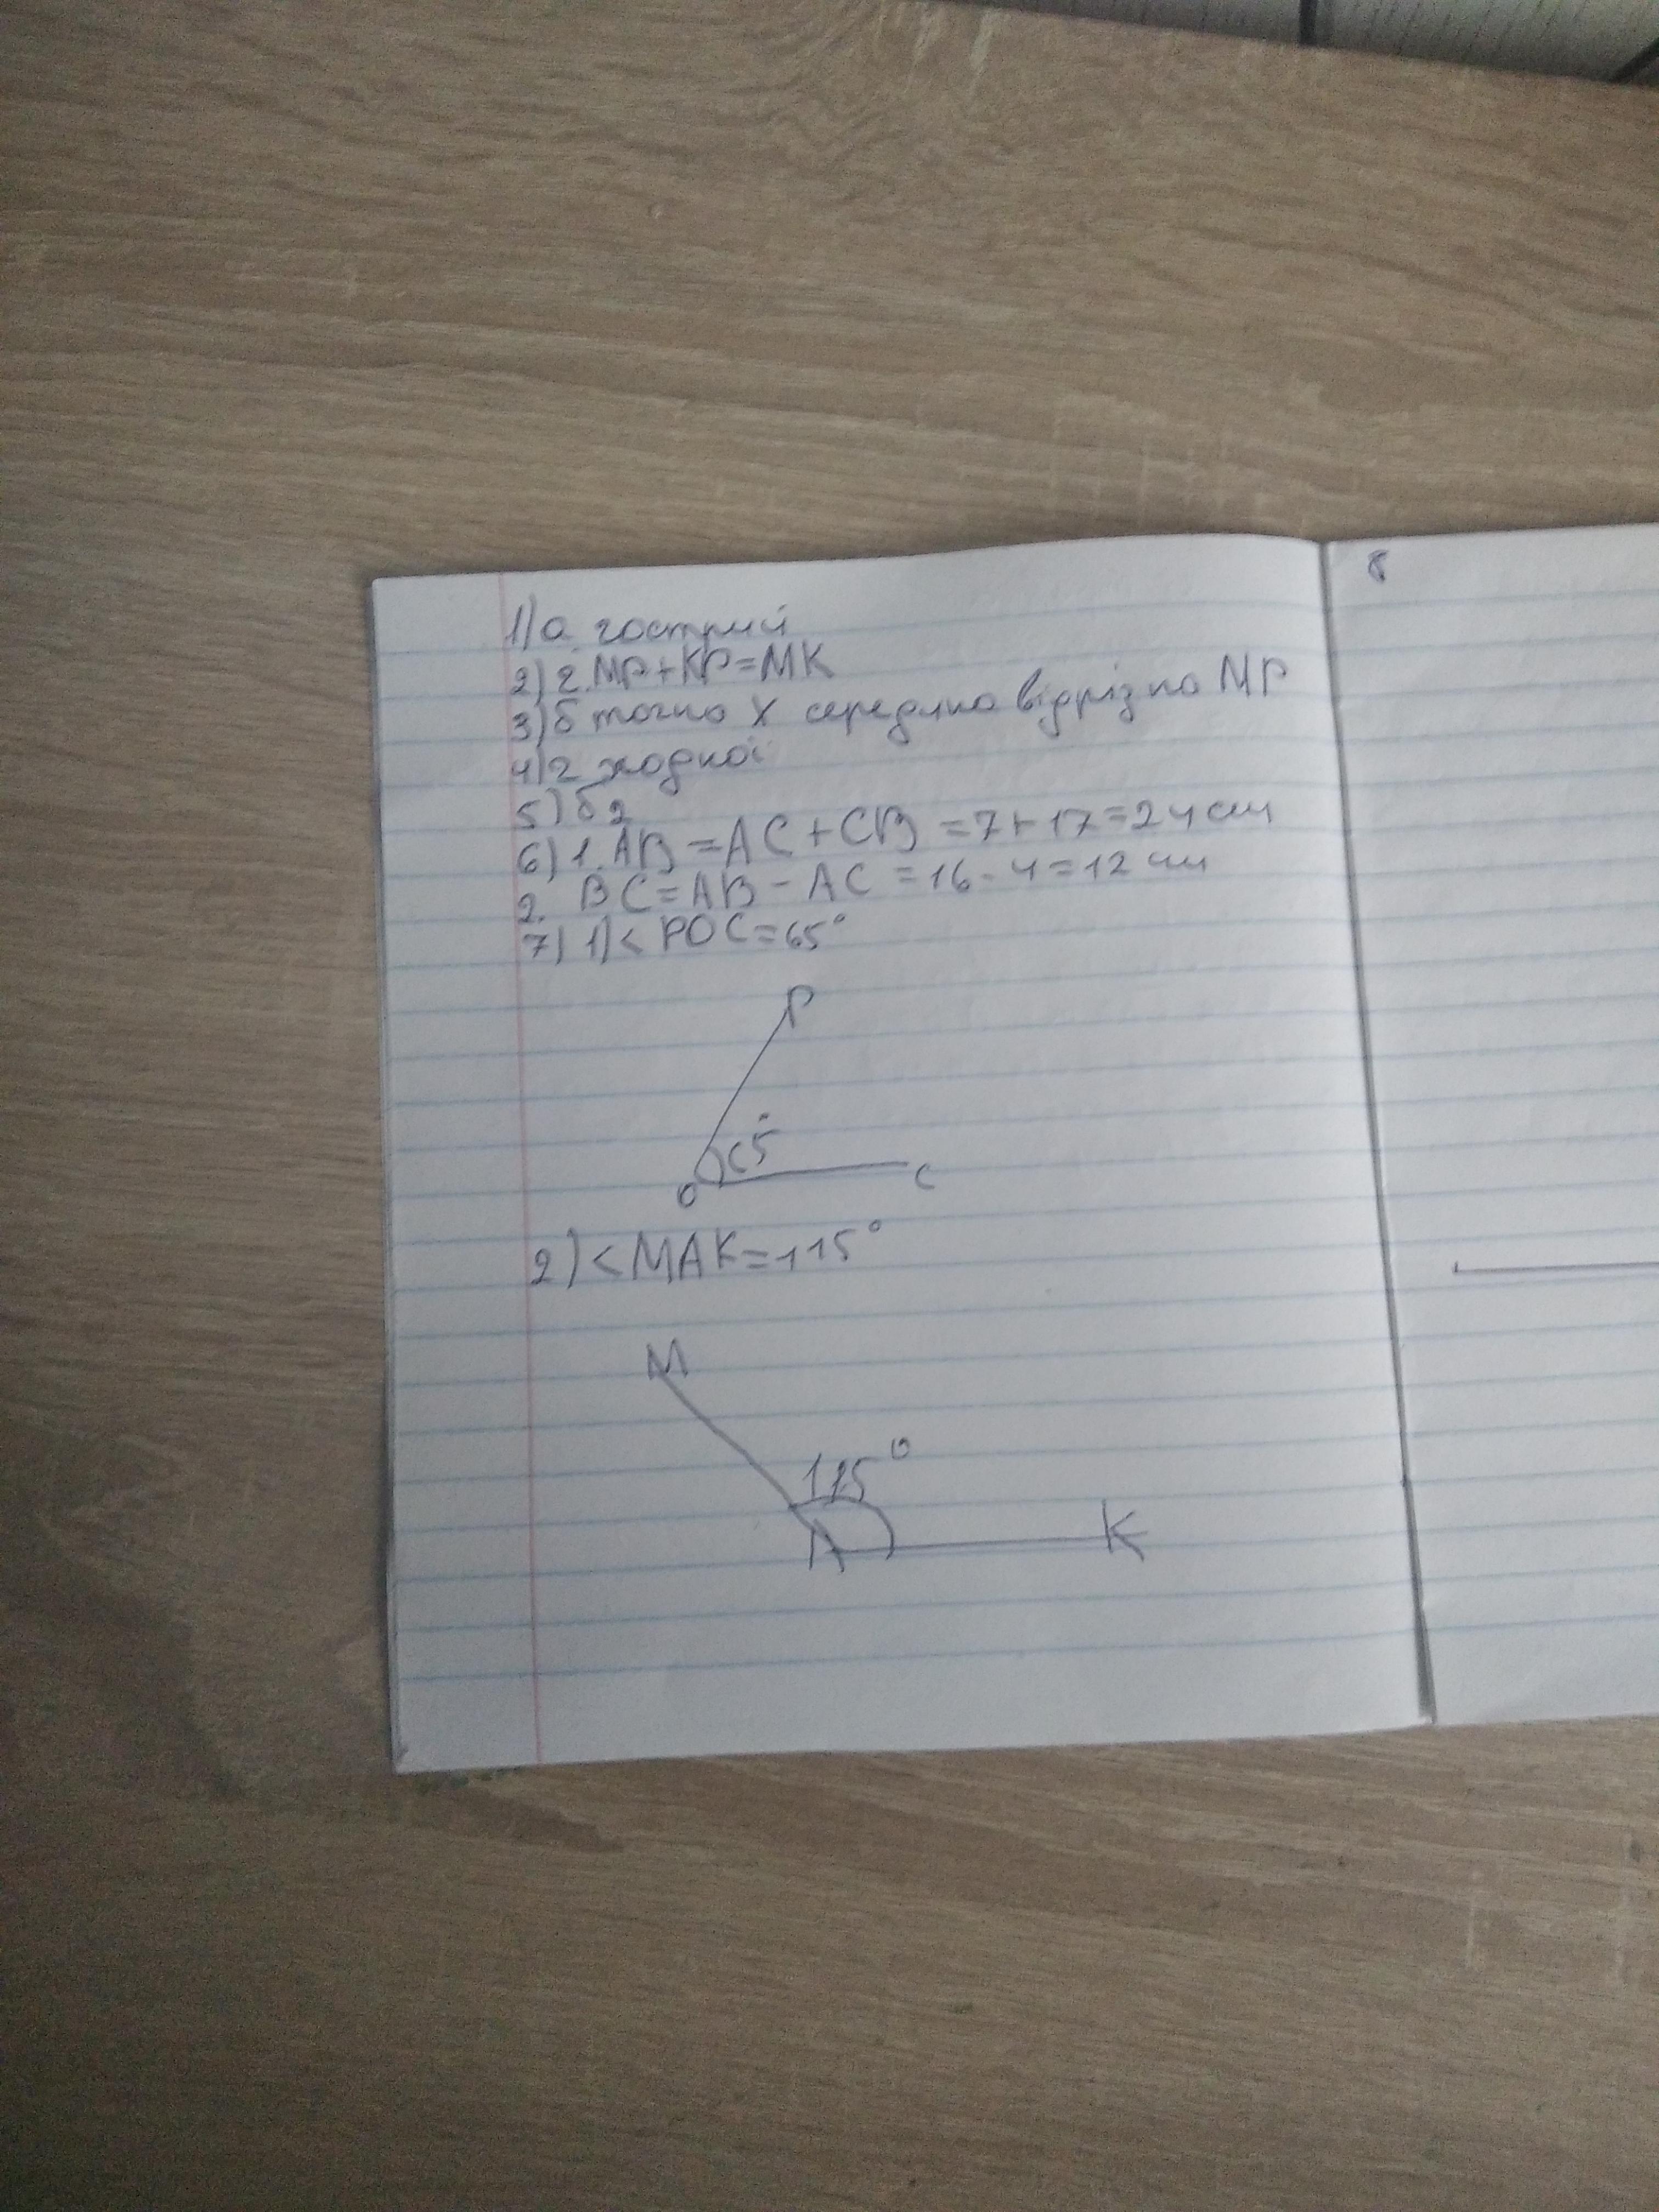 1) а гострий
2) г. MP + KP = MK
3) б точка X середина відрізка MP
4) г жодної
5) б 2
6) 1. AB = AC + CB = 7 + 17 = 24 см
2. BC = AB - AC = 16 - 4 = 12 см
7) 1) < POC = 65°
P
65°
O
C
2) < MAK = 115°
M
115°
A
K
8